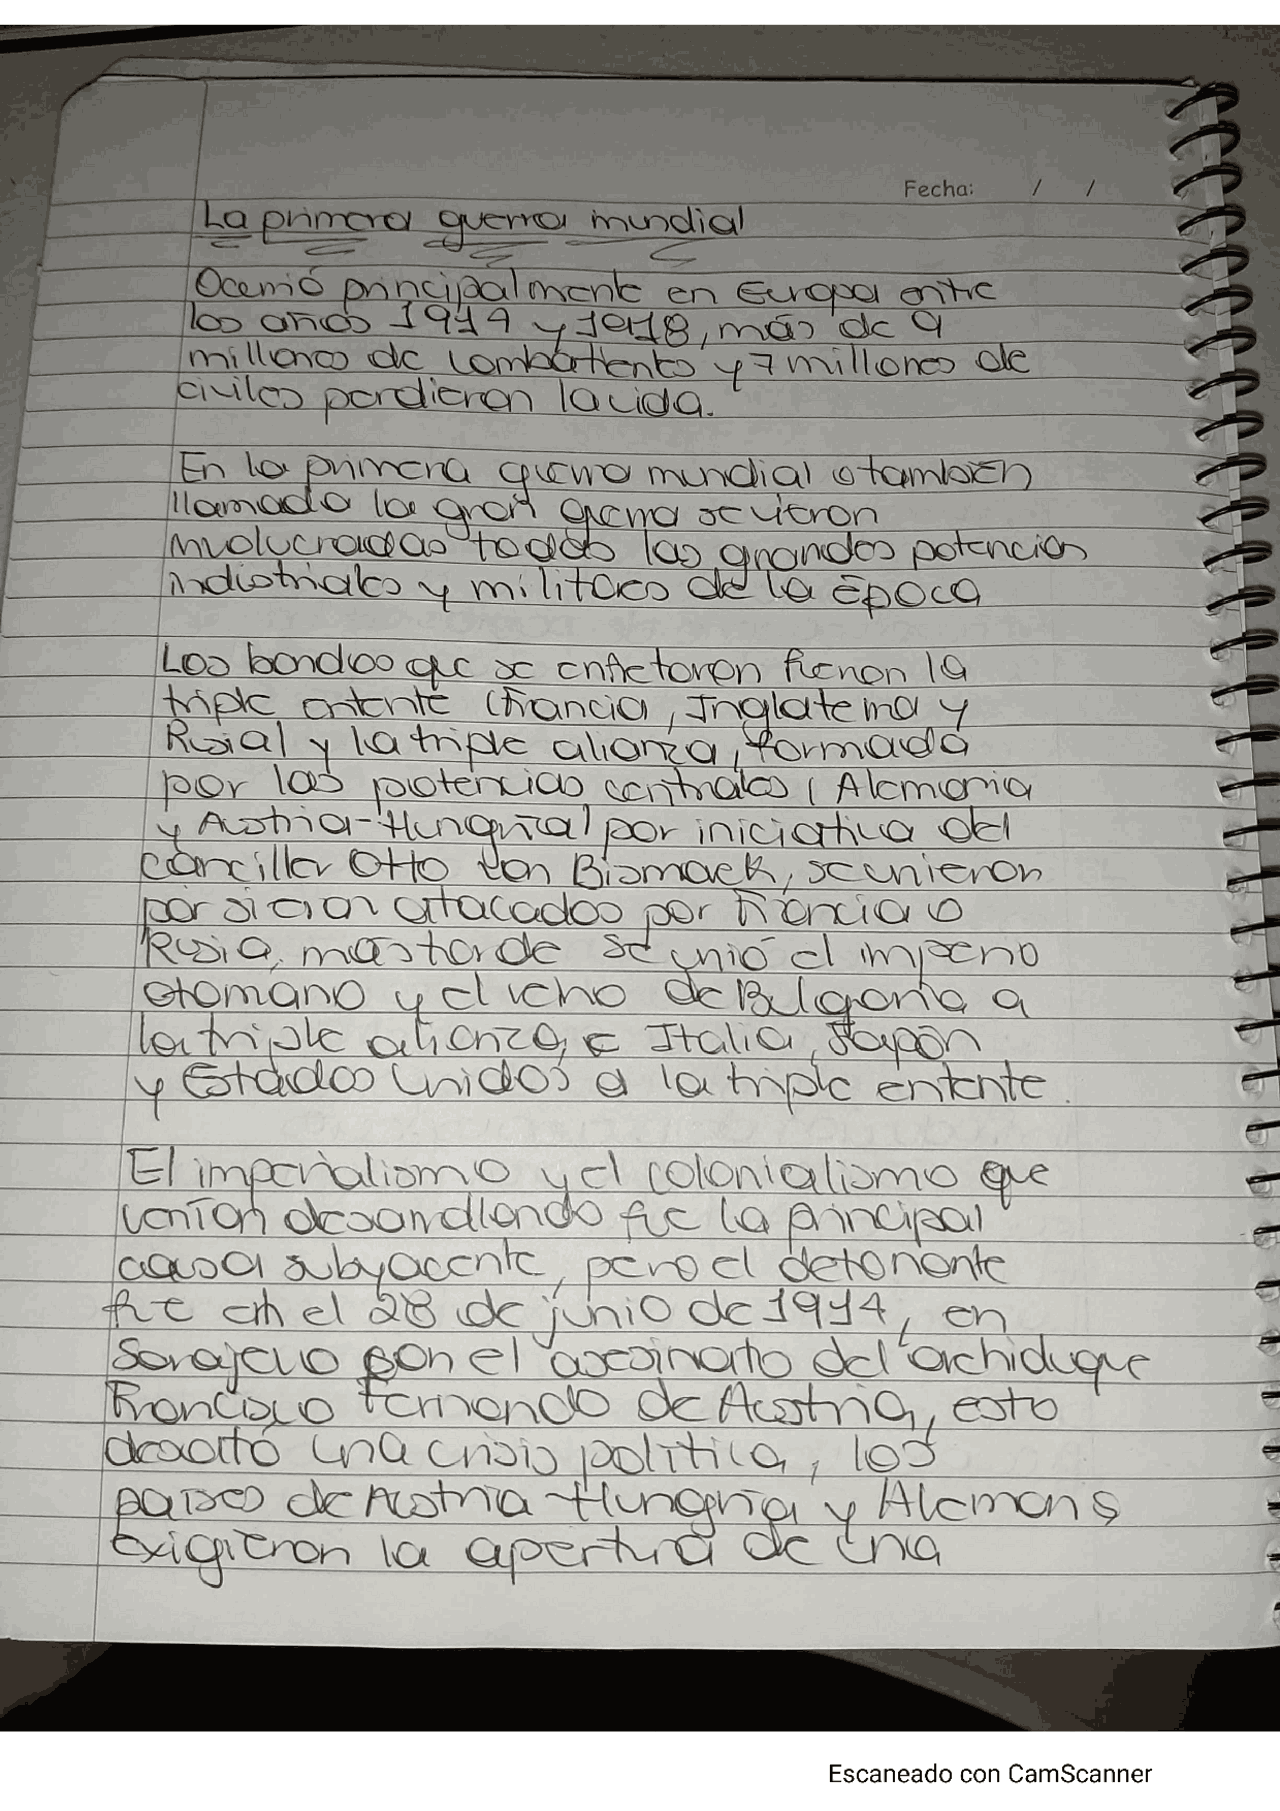 Fecha: / /
La primera guerra mundial
Ocurrió principalmente en Europa entre
los años 1914 y 1918, más de 9
millones de combatientes y 7 millones de
civiles perdieron la vida.
En la primera guerra mundial o también
llamada la gran guerra se vieron
involucradas todas las grandes potencias
industriales y militares de la época
Los bandos que se enfretaron fueron la
triple entente (Francia, Inglaterra y
Rusia) y la triple alianza, formada
por las potencias centrales (Alemania
y Austria-Hungría) por iniciativa del
canciller Otto von Bismack, se unieron
por si eran atacados por Francia o
Rusia, más tarde se unió el imperio
otomano y el reino de Bulgaria a
la triple alianza, e Italia, Japón
y Estados Unidos a la triple entente.
El imperialismo y el colonialismo que
venían desarrollando fue la principal
causa subyacente, pero el detonante
fue en el 28 de junio de 1914, en
Sarajevo con el asesinato del archiduque
Francisco Fernando de Austria, esto
desató una crisis política, los
países de Austria-Hungría y Alemana
exigieron la apertura de una
Escaneado con CamScanner